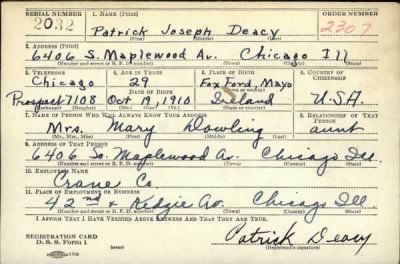 SERIAL NUMBER 1. NAME (Print) ORDER NUMBER
2032 Patrick Joseph Deacy 2307
(First) (Middle) (Last)
2. ADDRESS (Print)
6406 S. Maplewood Av. Chicago Ill
(Number and street or R. F. D. number) (Town) (County) (State)
3. TELEPHONE 4. AGE IN YEARS 5. PLACE OF BIRTH 6. COUNTRY OF CITIZENSHIP
Chicago 29 Foxford, Mayo
DATE OF BIRTH (Town or county)
Prospect 7108 Oct 19, 1910 Ireland U.S.A.
(Exchange) (Number) (Mo.) (Day) (Yr.) (State or country)
7. NAME OF PERSON WHO WILL ALWAYS KNOW YOUR ADDRESS 8. RELATIONSHIP OF THAT PERSON
Mrs. Mary Dowling aunt
(Mr., Mrs., Miss) (First) (Middle) (Last)
9. ADDRESS OF THAT PERSON
6406 So. Maplewood Av. Chicago Ill.
(Number and street or R. F. D. number) (Town) (County) (State)
10. EMPLOYER'S NAME
Crane Co
11. PLACE OF EMPLOYMENT OR BUSINESS
42nd & Kedzie Av. Chicago Ill.
(Number and street or R. F. D. number) (Town) (County) (State)
I AFFIRM THAT I HAVE VERIFIED ABOVE ANSWERS AND THAT THEY ARE TRUE.
REGISTRATION CARD
D. S. S. Form 1 Patrick Deacy
(Registrant's signature)